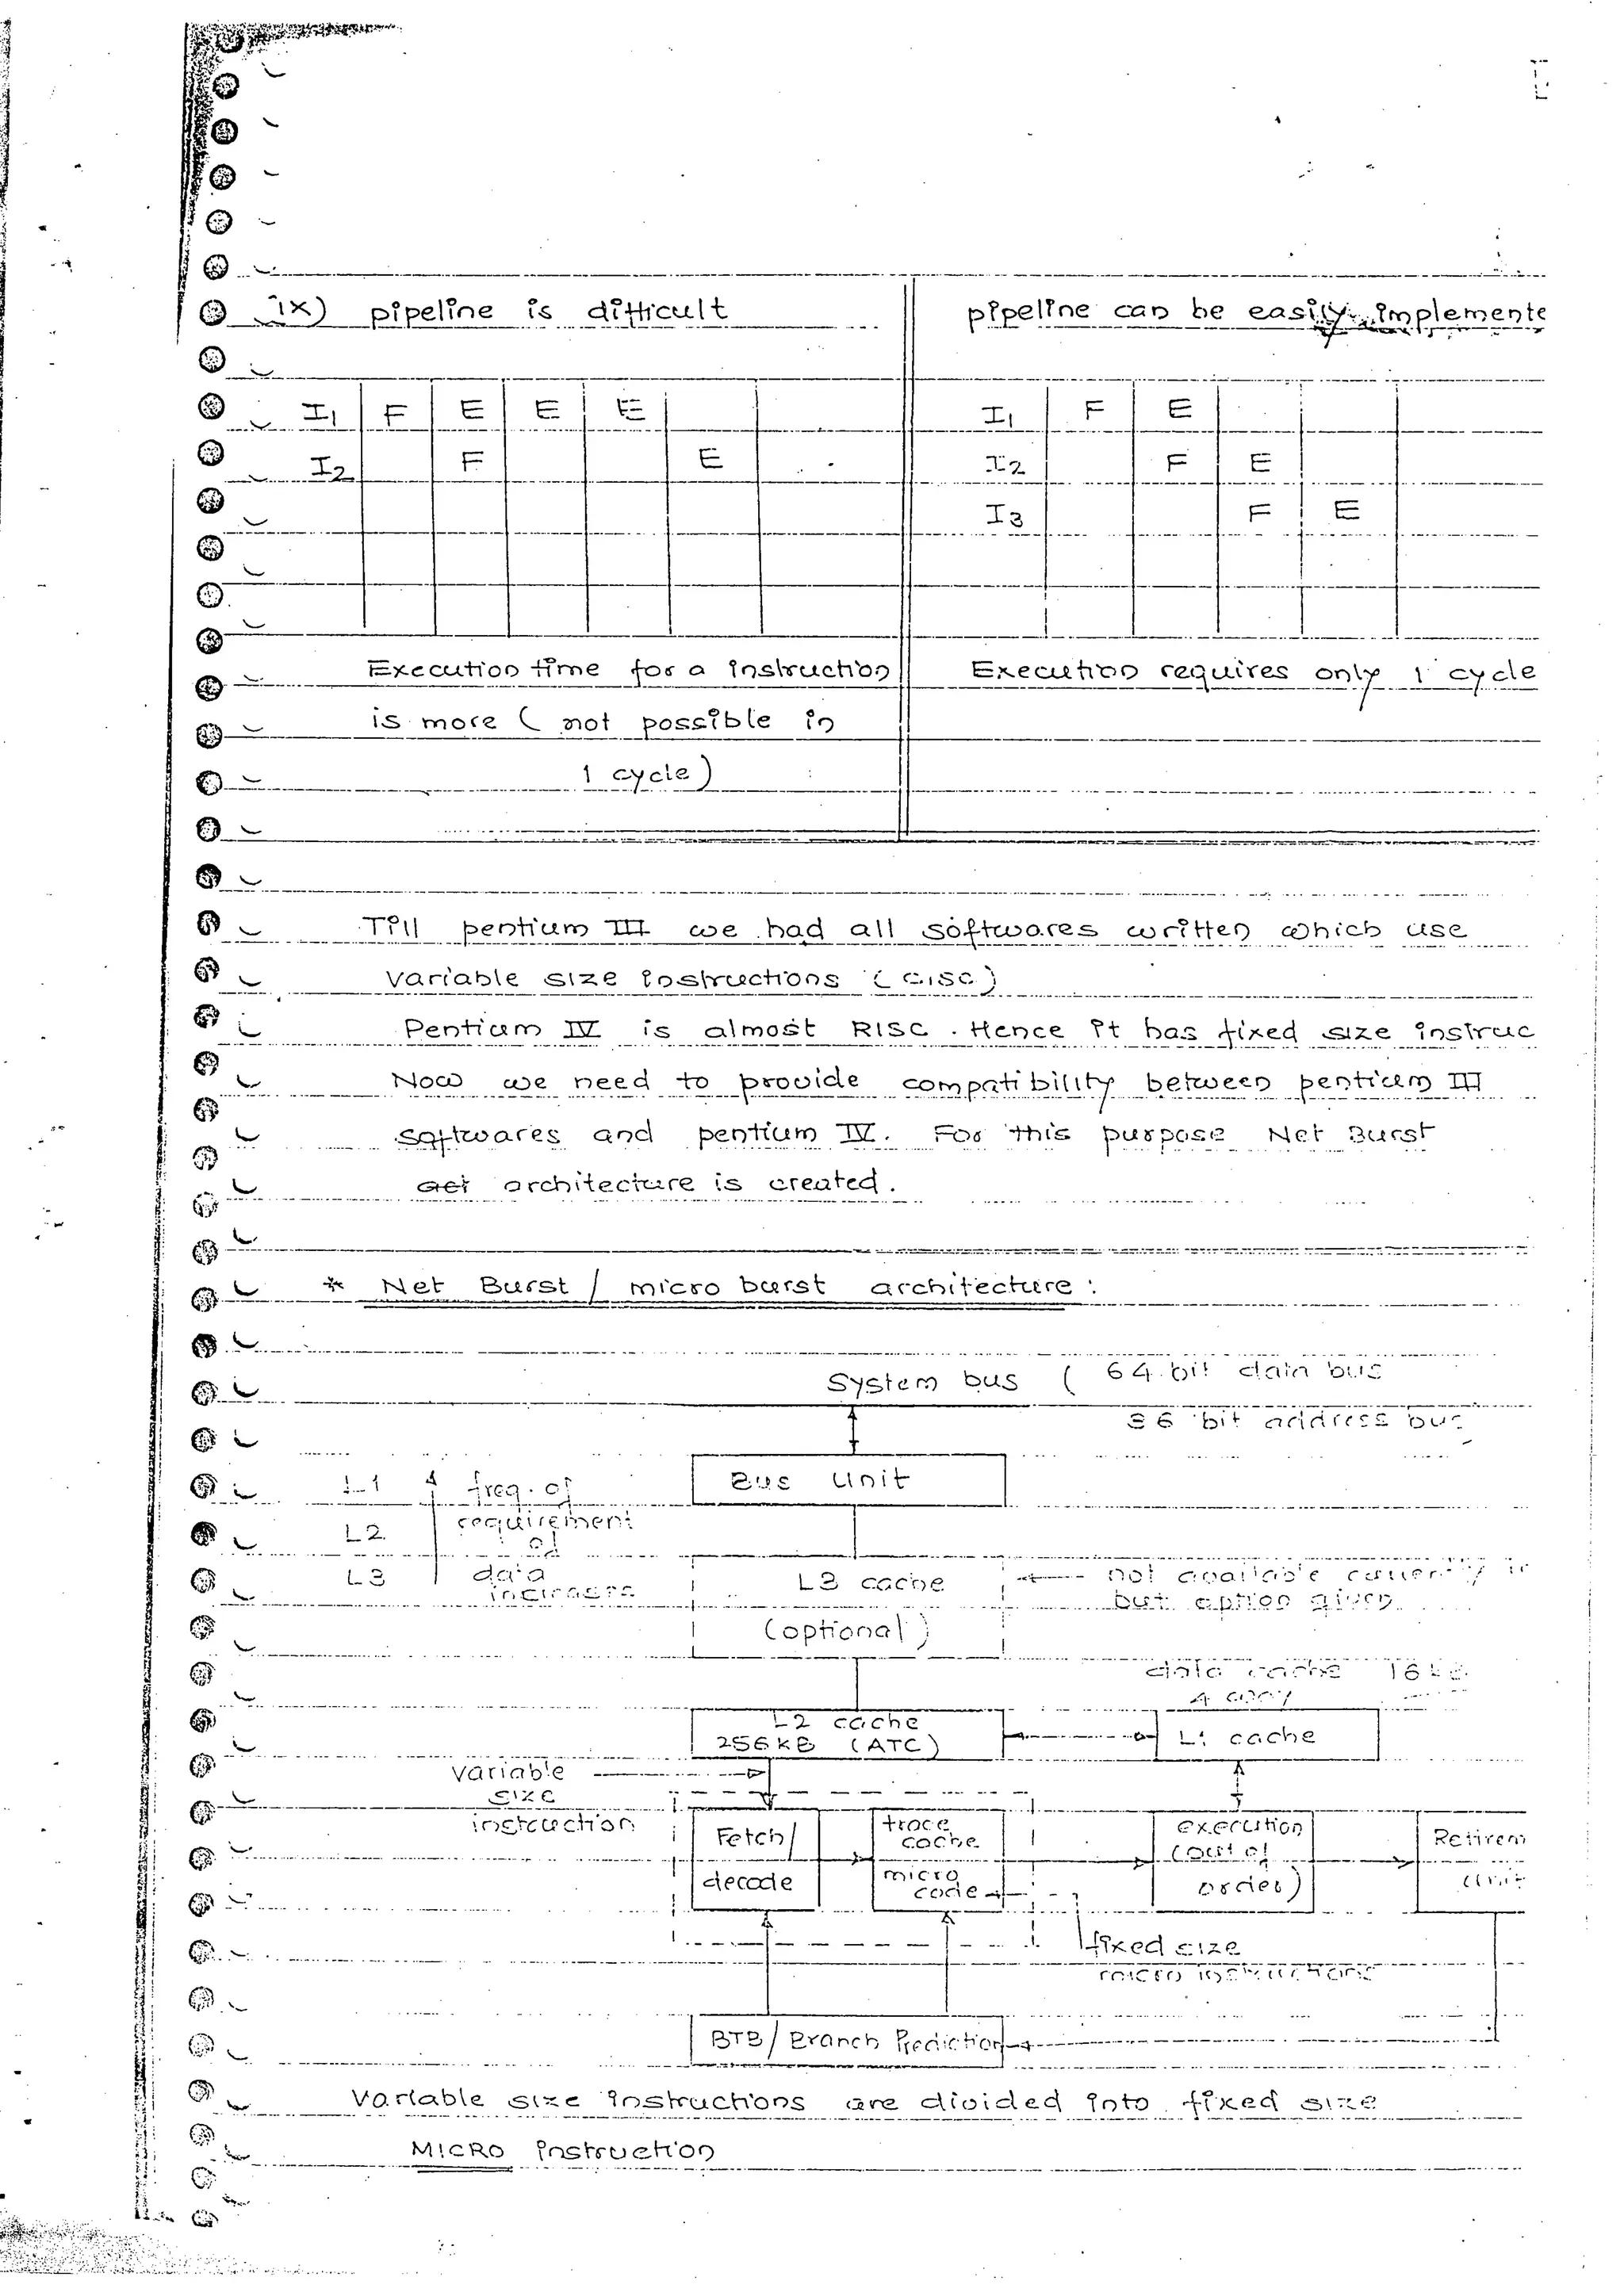 ix) pipeline is difficult
pipeline can be easily implemente
I1 F E E E
I2 F E
I1 F E
I2 F E
I3 F E
Execution time for a instruction
is more ( not possible in
1 cycle)
Execution requires only 1 cycle
Till pentium III we had all softwares written which use
variable size instructions (CISC)
Pentium IV is almost RISC. Hence it has fixed size instruc
Now we need to provide compatibility between pentium III
softwares and pentium IV. For this purpose Net Burst
architecture is created.
* Net Burst / micro burst architecture :
System bus ( 64 bit data bus
36 bit address bus
Bus Unit
L1
L2
L3
freq. of
requirement
of
data
increases
L3 cache
(optional)
not available currently
but option given
data cache 16 KB
4 way
L2 cache
256KB (ATC)
L1 cache
variable
size
instruction
Fetch/
decode
trace
cache
micro
code
execution
(out of
order)
Retirem
unit
fixed size
micro instructions
BTB/ Branch Prediction
Variable size instructions are divided into fixed size
MICRO instruction